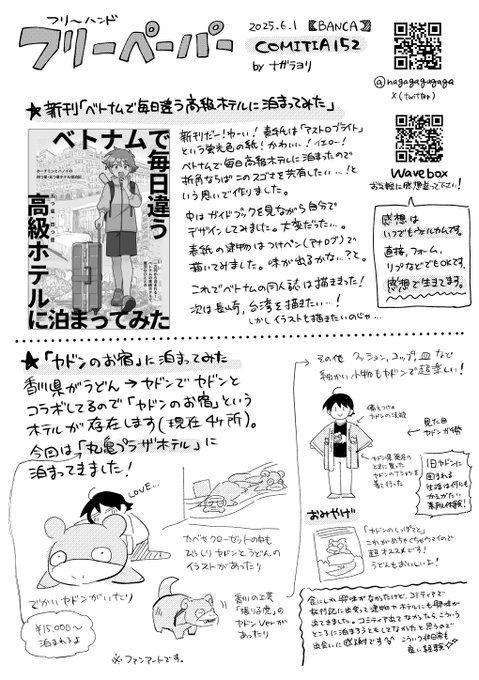 フリーハンド
フリーペーパー
2025.6.1 【BANCA】
COMITIA152
by ナガラヨリ
@nagagagagaga
X(twitter)
Wavebox
お気軽に感想送って下さい!
感想は
いつでもウェルカムです。
直接、フォーム、
リプなどでもOKです。
感想で生きてます。
★新刊「ベトナムで毎日違う高級ホテルに泊まってみた」
ベトナムで
毎日違う
高級ホテル
に泊まってみた
新刊だー!わーい! 表紙は「マストロブライト」
という蛍光色の紙!かわいい!イエロー!
ベトナムで毎日高級ホテルに泊まったので
折角ならばこのスゴさを共有したい…!と
いう思いで作りました。
中はガイドブックを見ながら自分で
デザインしてみました。大変だった…。
表紙の建物はつけペン(アナログ)で
描いてみました。味が出るかな…?と。
これでベトナムの同人誌は描きました!
次は長崎、台湾を描きたい…!
しかしイラストも描きたいのじゃ…
★「ヤドンのお宿」に泊まってみた
香川県がうどん→ヤドンでヤドンと
コラボしてるので「ヤドンのお宿」という
ホテルが存在します(現在4ヶ所)。
今回は「丸亀プラザホテル」に
泊まってきました!
LOVE…
でかいヤドンがいたり
¥15,000〜
泊まれるよ
カベやクローゼットの中も
びっしりヤドンとうどんの
イラストがあったり
香川の工芸
「張り子虎」の
ヤドンVerが
あったり
※ファンアートです。
その他 クッション、コップ、皿など
細かい小物もヤドンで超楽しい!
備えつけの
ヤドンの法被
見た目
ヤドンが勢
ヤドン県
着て行った
1日ヤドンに
囲まれる
生活は何にも
かえがたい
素敵な体験!
おみやげ
「ヤドンのしっぽてと」
これがめちゃくちゃウマイので
超オススメです!
うどんもおいしいよ!
旅行記に出会って建物やホテルにも興味が
出てきました。コミティア出てなかったら、こういう
ところに泊まろうともしてなかったと思うので
出会いに感謝です
良い経験